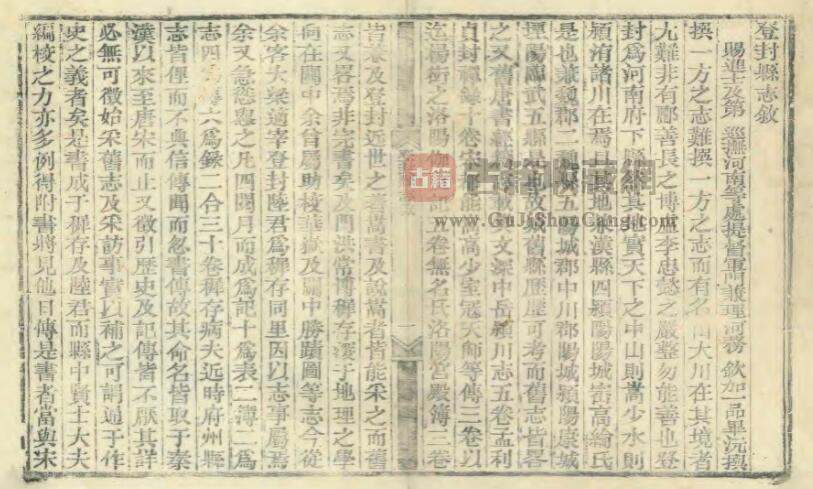 登封縣志敘
賜進士及第 巡撫河南等處提督軍門兼理河務 欽加一品畢沅撰
撰一方之志難撰一方之志而有名山大川在其境者
尤難非有酈善長之博李忠懿之嚴整勿能善也登
封爲河南府下縣其地實天下之中山則嵩少水則
潁洧諸川在焉其地兼漢縣四潁陽陽城崈高綸氏
是也兼魏郡二魏縣五陽城郡中川郡陽城潁陽康城
堙陽臨武五縣是也故城舊縣歷歷可考而舊志皆畧
之又舊唐書經籍志載文深中岳潁川志五卷孟利
貞封禪錄十卷宋能嵩高少室寇天師等傳三卷以
迄楊衒之洛陽伽藍記五卷無名氏洛陽宮殿簿三卷
皆兼及登封近世之著嵩書及說嵩者皆能采之而舊
志又畧焉非完書矣及門洪常博穉存深于地理之學
向在關中余曾屬助校華嶽及關中勝蹟圖等志今從
余客大梁適宰登封陸君爲穉存同里因以志事屬焉
余又急慫惥之凡四閱月而成爲記十爲表二簿一爲
志四爲傳六爲錄二合三十卷穉存病夫近時府州縣
志皆俚而不典信傳聞而忽書傳故其命名皆取于秦
漢以來至唐宋而止又徵引歷史及記傳皆不厭其詳
必無可徵始采舊志及采訪事實以補之可謂通于作
史之義者矣是書成于穉存及陸君而縣中賢士大夫
編校之力亦多例得附書將見他日傳是書者當與宋
古籍
古籍收藏网
www.GuJiShouCang.com